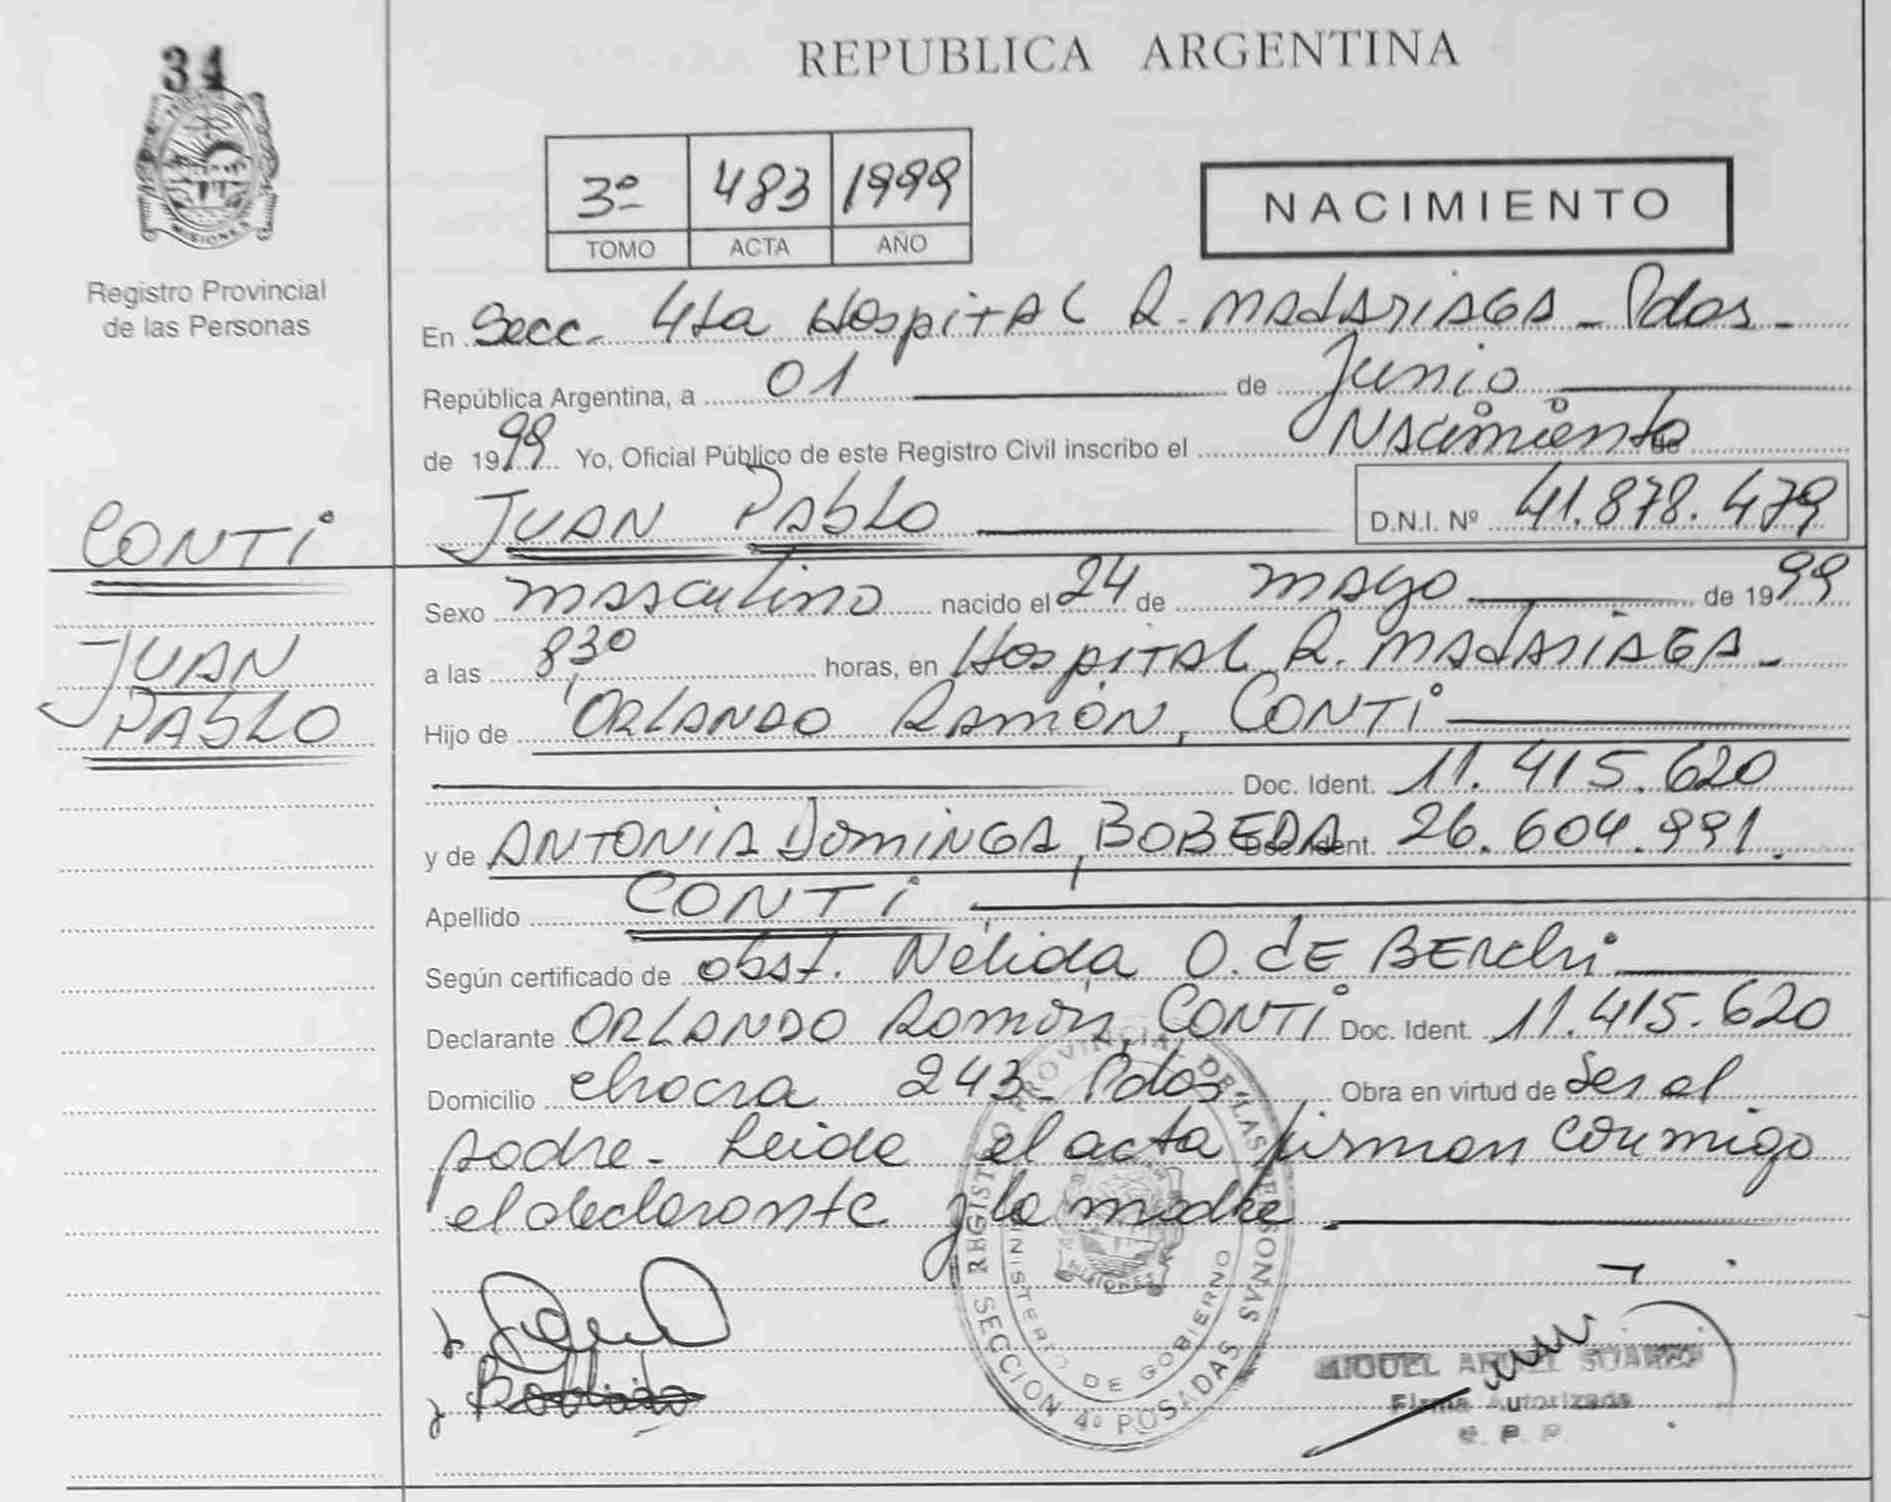 34
MISIONES
Registro Provincial
de las Personas
REPUBLICA ARGENTINA
3º 483 1999
TOMO ACTA AÑO
NACIMIENTO
En Secc. 4ta Hospital R. Madariaga - Pdas -
República Argentina, a 01 de Junio
de 1999 Yo, Oficial Público de este Registro Civil inscribo el Nacimiento de
Juan Pablo D.N.I. Nº 41.878.479
CONTi
JUAN
PABLO
Sexo masculino nacido el 24 de mayo de 1999
a las 8,30 horas, en Hospital R. Madariaga -
Hijo de ORLANDO RAMÓN, CONTi
Doc. Ident. 11.415.620
y de ANTONIA DOMINGA, BOBEDA Doc. Ident. 26.604.991.
Apellido CONTi
Según certificado de obst. Nélida O. de BERchi
Declarante ORLANDO Ramón, CONTi Doc. Ident. 11.415.620
Domicilio chacra 243 - Pdas - Obra en virtud de ser el
padre - Leida el acta firman conmigo
el declarante y la madre
REGISTRO PROVINCIAL DE LAS PERSONAS
MINISTERIO DE GOBIERNO
SECCION 4ª POSADAS
MIGUEL ANGEL SUAREZ
Firma Autorizada